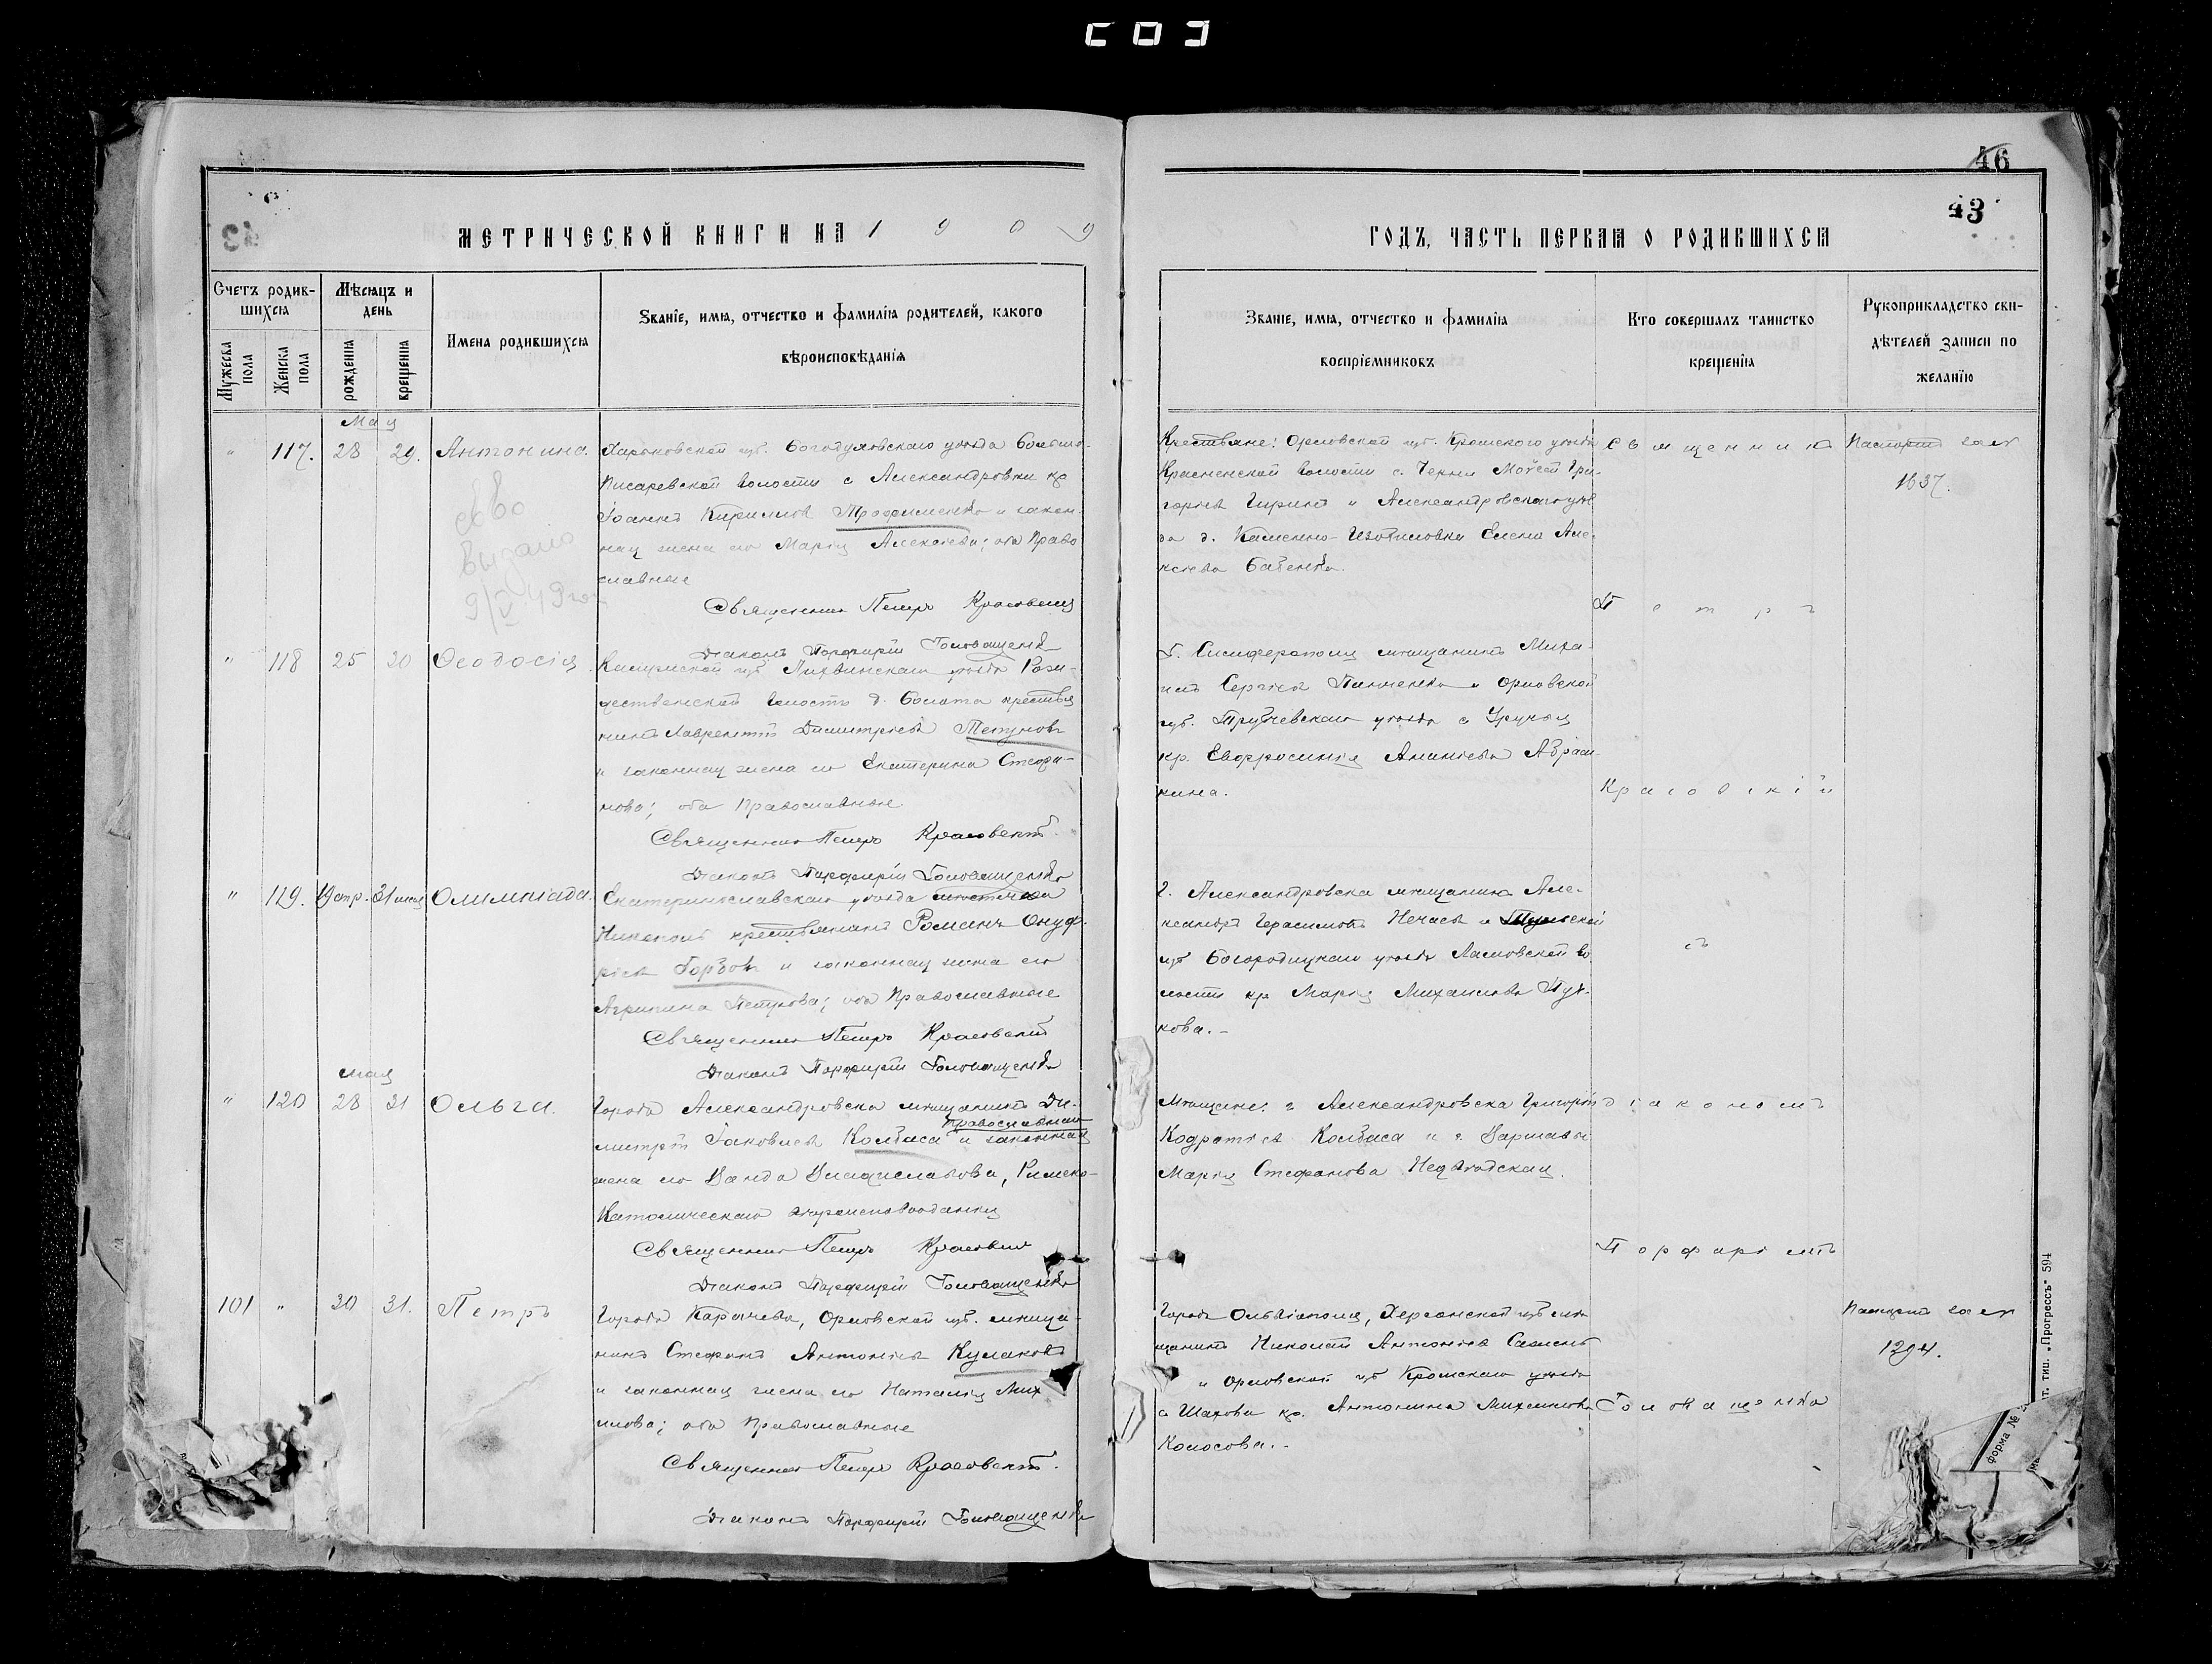 46
43
МЕТРИЧЕСКОЙ КНИГИ НА 1909
ГОДЪ, ЧАСТЬ ПЕРВАЯ О РОДИВШИХСЯ
Счетъ родив-
шихся
Мужеска пола
Женска пола
Мѣсяцъ и
день
рожденія
крещенія
Имена родившихся
Званіе, имя, отчество и фамилія родителей, какого
вѣроисповѣданія
Званіе, имя, отчество и фамилія
воспріемниковъ
Кто совершалъ таинство
крещенія
Рукоприкладство сви-
дѣтелей записи по
желанію
Мая
" 117. 28 29. Антонина.
св-во
выдано
9/V 49 г
Харьковской губ. Богодуховскаго уѣзда Больше-
Писаревской волости с Александровки кр
Іоаннъ Кириловъ Трофименко и закон-
ная жена его Марія Алексіева; оба Право
славные
Священникъ Петръ Красовскій
Діаконъ Порфирій Головащенко
Крестьяне: Орловской губ. Кромскаго уѣзда
Красненской волости с. Черни Моѵсей Гри-
горіевъ и Александровскаго уѣз
да д. Каменно- Елена Але-
ксіева Бабенко.
Священник
Паспортъ за №
1637.
" 118 25 30 Ѳеодосія.
Калужской губ Лихвинскаго уѣзда Рож-
дественской волости д. Болота крестья
нинъ Лаврентій Димитріевъ
и законная жена его Екатерина Стефа-
нова; оба Православные
Священникъ Петръ Красовскій.
Діаконъ Порфирій Головащенко
Г. Симферополя мѣщанинъ Миха-
илъ Сергіевъ и Орловской
губ. Трубчевскаго уѣзда с
кр. Евфросинія Ананіева Абрам-
кина.
Петръ
Красовскій
" 119. 19 апр. 31 мая Олимпіада.
Екатеринославскаго уѣзда мѣстечка
Никополь крестьянинъ Романъ Онуф-
ріевъ и законная жена его
Агрипина Петрова; оба Православные
Священникъ Петръ Красовскій
Діаконъ Порфирій Головащенко
г. Александровска мѣщанинъ Але-
ксандръ Герасимовъ Нечаевъ и Тульской
губ Богородицкаго уѣзда Ламовской во
лости кр Марія Михаилова
кова.-
съ
мая
" 120 28 31 Ольга.
Города Александровска мѣщанинъ Ди-
православный
митрій Іаковлевъ Колбаса и законная
жена его Ванда Владиславова, Римско-
Католическаго вѣроисповѣданія
Священникъ Петръ Красовскій
Діаконъ Порфирій Головащенко
Мѣщане: г Александровска Григорій
Кодратіевъ Колбаса и г. Варшавы
Марія Стефанова
діакономъ
Порфиріемъ
101 " 30 31. Петръ
Города Карачева, Орловской губ. мѣща-
нинъ Стефанъ Антоніевъ Кулаковъ
и законная жена его Наталія Мих
илова; оба Православные
Священникъ Петръ Красовскій.
Діаконъ Порфирій Головащенко
Города Ольвіополя, Херсонской губ мѣ
щанинъ Николай Антоніевъ
и Орловской губ Кромскаго уѣзда
с Шахова кр. Антонина Михаилова
Колосова.-
Головащенко
Паспортъ за №
1294.
т. тип. „Прогрессъ" 594
форма №